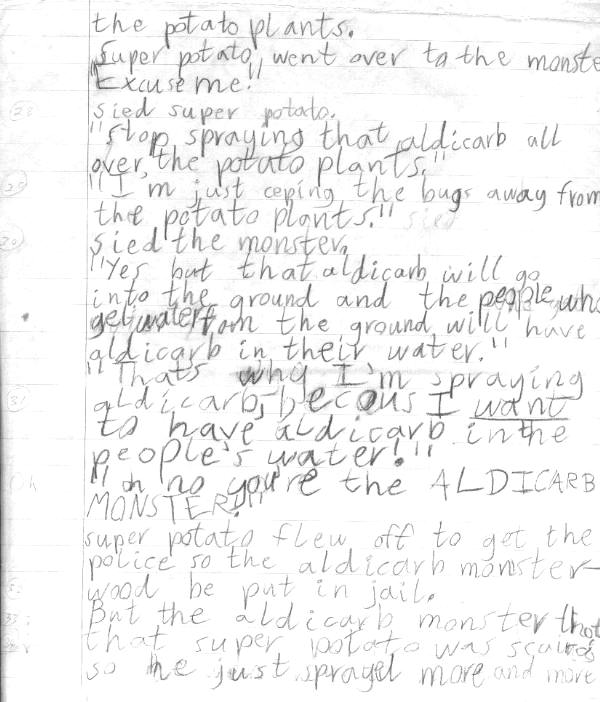 the potato plants.
Super potato went over to the monste
"Excuse me!"
sied super potato.
"Stop spraying that aldicarb all
over the potato plants."
"I'm just ceping the bugs away from
the potato plants." sied
sied the monster.
"Yes but that aldicarb will go
into the ground and the people who
get water from the ground will have
aldicarb in their water."
"Thats why I'm spraying
aldicarb, becous I want
to have aldicarb in the
people's water!"
"oh no you're the ALDICARB
MONSTER!"
super potato flew off to get the
police so the aldicarb monster
wood be put in jail.
But the aldicarb monster thot
that super potato was scaired
so he just sprayd more and more